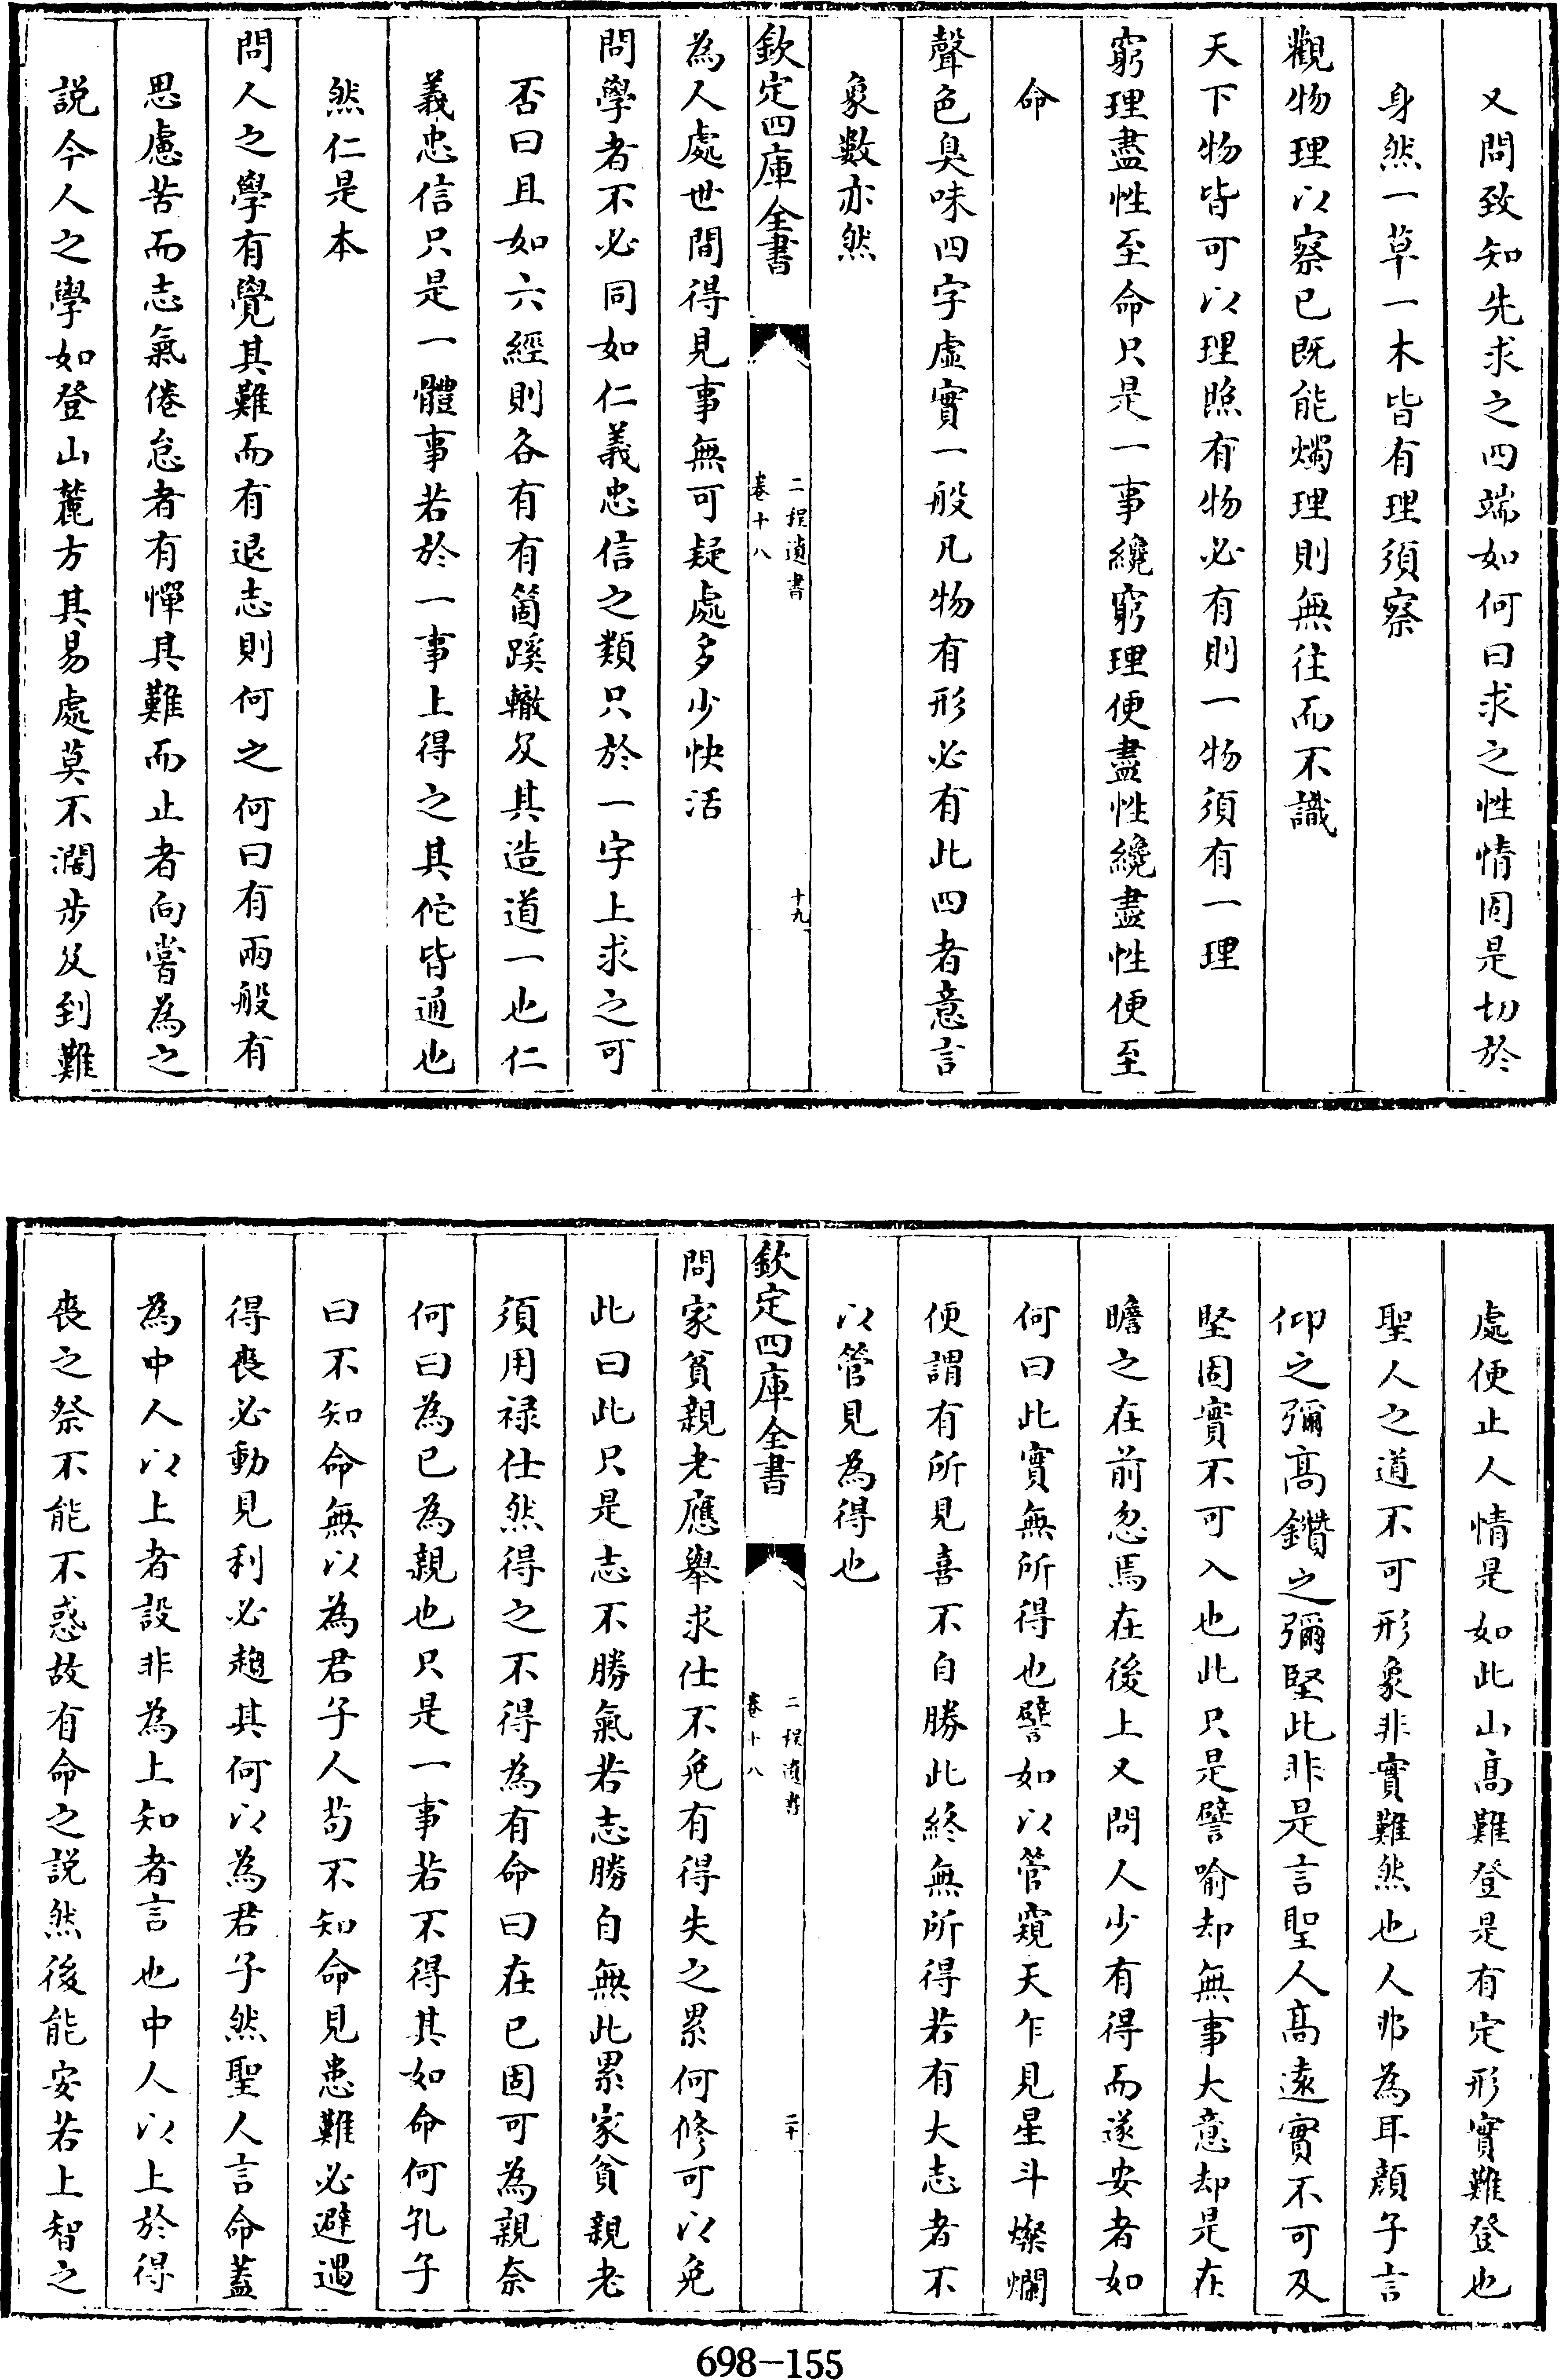 又問致知先求之四端如何曰求之性情固是切於
身然一草一木皆有理須察
觀物理以察已既能燭理則無往而不識
天下物皆可以理照有物必有則一物須有一理
窮理盡性至命只是一事纔窮理便盡性纔盡性便至
命
聲色臭味四字虛實一般凡物有形必有此四者意言
象數亦然
欽定四庫全書
二程遺書
卷十八
十九
為人處世間得見事無可疑處多少快活
問學者不必同如仁義忠信之類只於一字上求之可
否曰且如六經則各有有箇蹊轍及其造道一也仁
義忠信只是一體事若於一事上得之其佗皆通也
然仁是本
問人之學有覺其難而有退志則何之何曰有兩般有
思慮苦而志氣倦怠者有憚其難而止者向嘗為之
說今人之學如登山麓方其易處莫不濶步及到難
處便止人情是如此山高難登是有定形實難登也
聖人之道不可形象非實難然也人弗為耳顏子言
仰之彌高鑽之彌堅此非是言聖人高遠實不可及
堅固實不可入也此只是譬喻却無事大意却是在
瞻之在前忽焉在後上又問人少有得而遂安者如
何曰此實無所得也譬如以管窺天乍見星斗燦爛
便謂有所見喜不自勝此終無所得若有大志者不
以管見為得也
欽定四庫全書
二程遺書
卷十八
二十
問家貧親老應舉求仕不免有得失之累何修可以免
此曰此只是志不勝氣若志勝自無此累家貧親老
須用祿仕然得之不得為有命曰在已固可為親奈
何曰為已為親也只是一事若不得其如命何孔子
曰不知命無以為君子人苟不知命見患難必避遇
得喪必動見利必趨其何以為君子然聖人言命蓋
為中人以上者設非為上知者言也中人以上於得
喪之祭不能不惑故有命之說然後能安若上智之
698-155